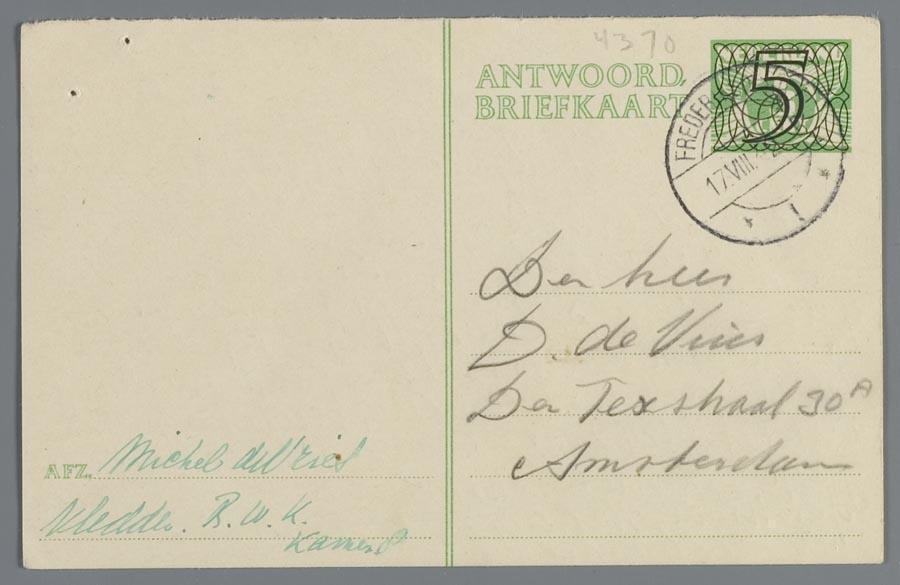 4370
ANTWOORD,
BRIEFKAART
5
FREDER
17.VIII.
1
Den heer
D. de Vries
Den Texstraat 30A
Amsterdam
AFZ. Michel de Vries
Vledder. R.W.K.
Kamer 8